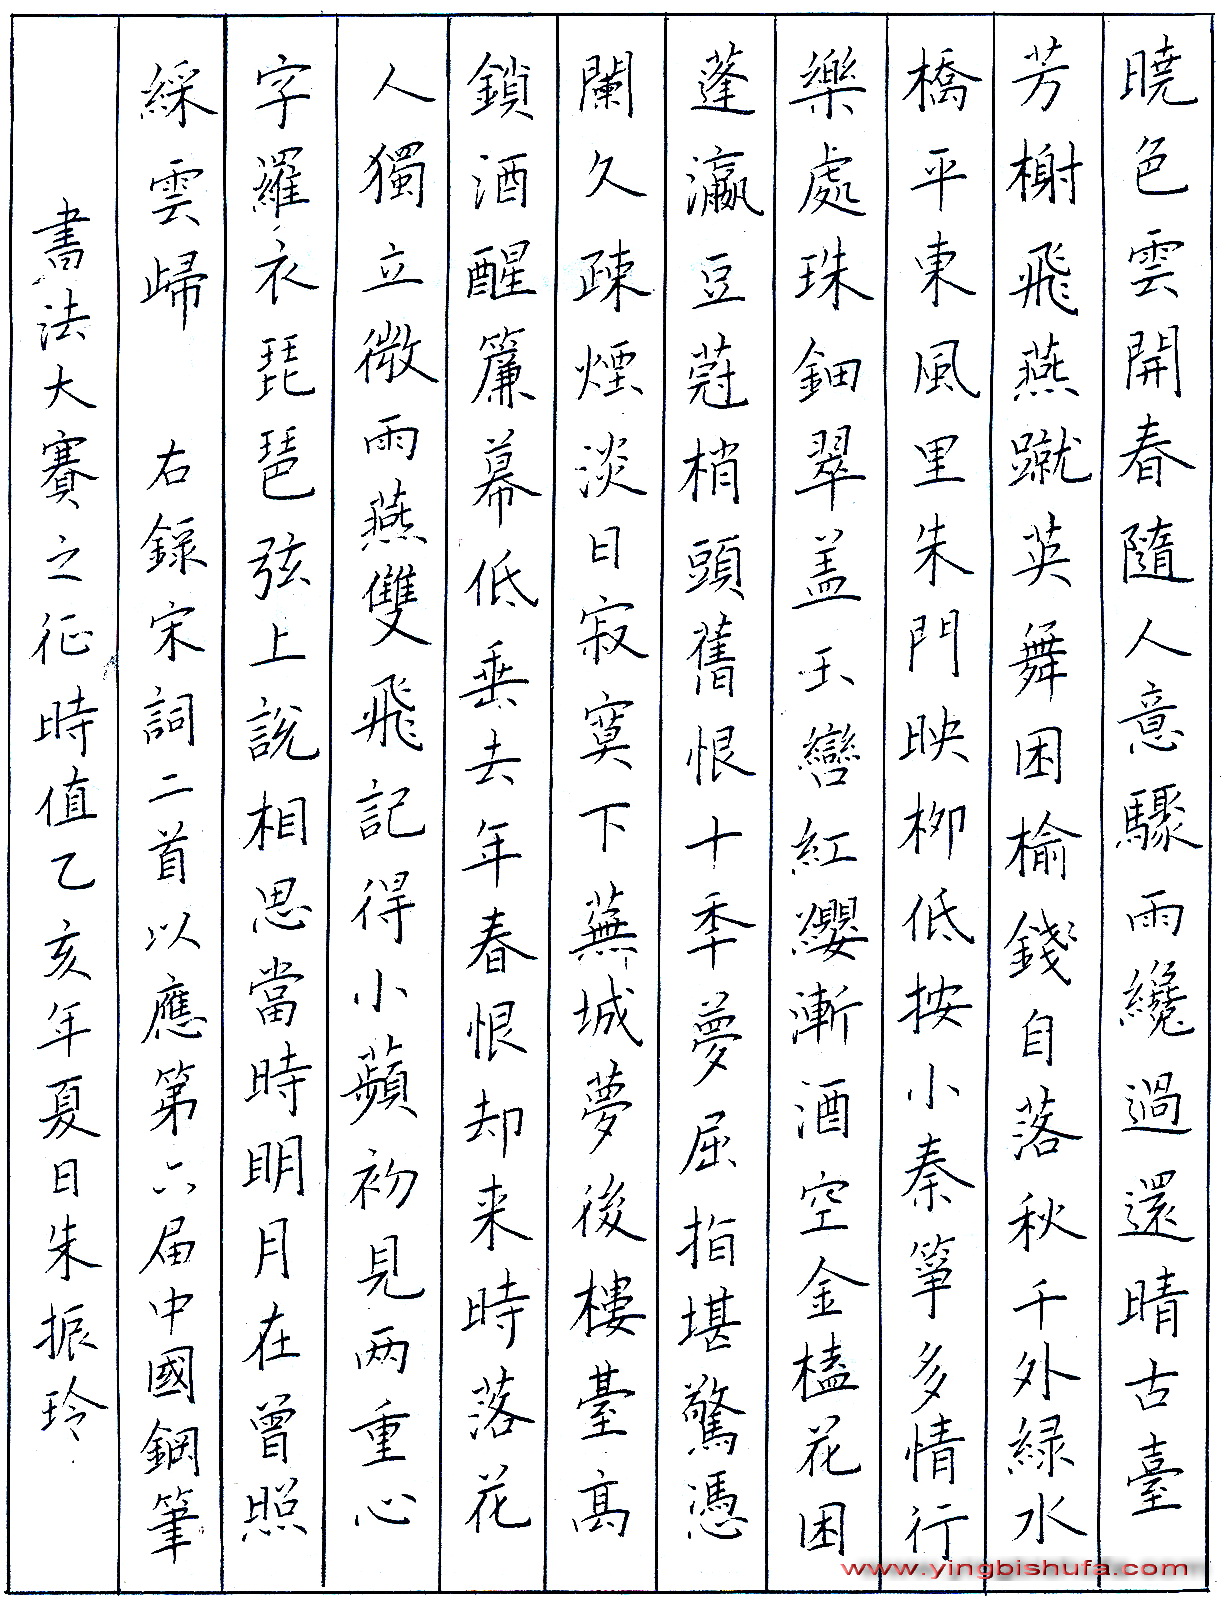 曉色雲開春隨人意驟雨纔過還晴古臺
芳榭飛燕蹴英舞困榆錢自落秋千外緑水
橋平東風里朱門映柳低按小秦箏多情行
樂處珠鈿翠盖玉轡紅纓漸酒空金榼花困
蓬瀛豆蔻梢頭舊恨十年夢屈指堪驚憑
闌久疎煙淡日寂寞下蕪城夢後樓臺高
鎖酒醒簾幕低垂去年春恨却来時落花
人獨立微雨燕雙飛記得小蘋初見两重心
字羅衣琵琶弦上説相思當時明月在曾照
綵雲歸 右録宋詞二首以應第六届中國鋼筆
書法大賽之征時值乙亥年夏日朱振玲
www.yingbishufa.com